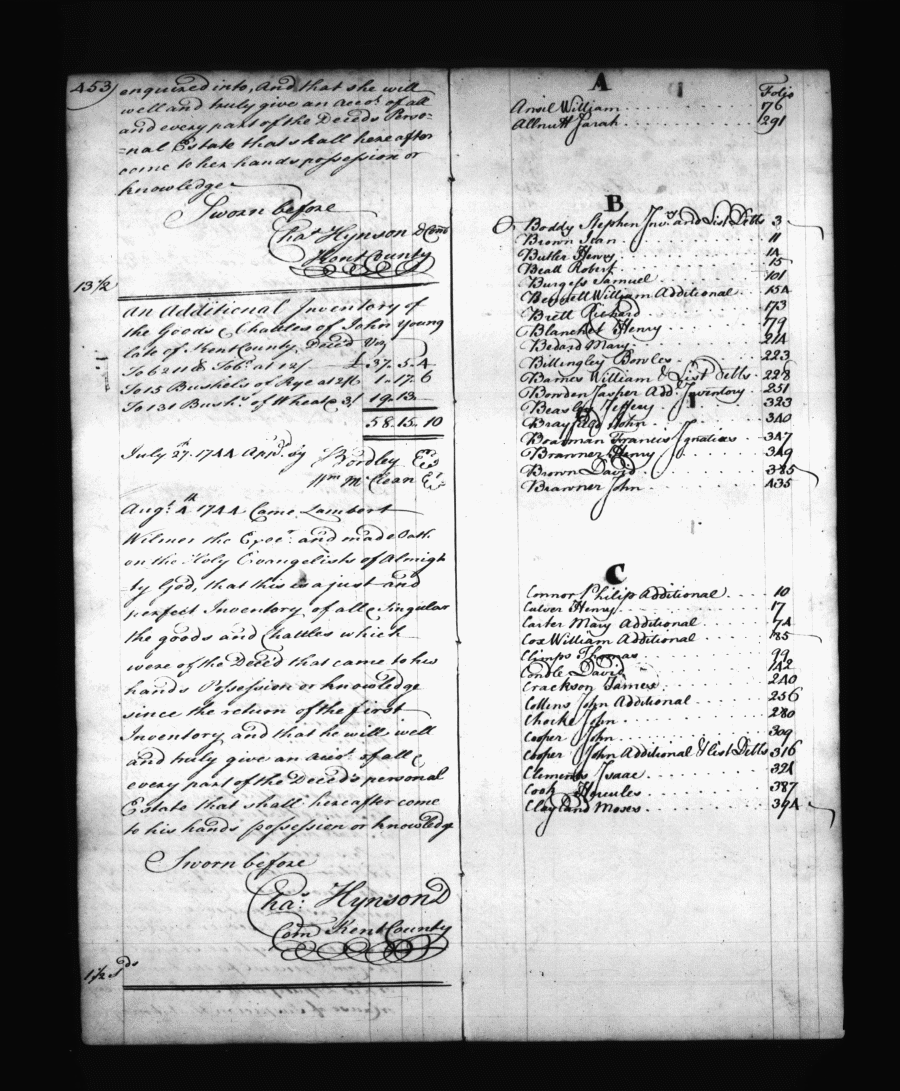 453
enquired into, And that she will
well and truly give an Acco.t of all
and every part of the Deced's Perso=
=nal Estate that shall hereafter
come to her hands possession or
knowledge
Sworn before
Cha.s Hynson D Com
Kent County
13 1/2
An Additional Inventory of
the Goods & Chattles of John Young
late of Kent County Dece'd Viz
To 6211 lb Tob.o at 12/ £ 37.. 5.. 4
To 15 Bushels of Rye at 2/6 1.. 17.. 6
To 131 Bush.s of Wheat @ 3/ 19.. 13..
58.. 15.. 10
July 27.th 1744 App.d by J Bordley
Wm McClean
Aug.t 4.th 1744 Came Lambert
Wilmer the Exec.r and made Oath
on the Holy Evangelists of Almigh
ty God, that this is a just and
perfect Inventory of all & singular
the goods and Chattles which
were of the Dece'd that came to his
hands Possession or knowledge
since the return of the first
Inventory and that he will well
and truly give an Acco.t of all &
every part of the Deced's personal
Estate that shall hereafter come
to his hands possession or knowledge
Sworn before
Cha.s Hynson D
Com Kent County
1 1/2 Sds
A
Folio
Anvil William 176
Allnutt Sarah 291
B
Boddy Stephen Inv.y and List Debts 3
Brown Jean 11
Butler Henry 14
Beall Robert 15
Burgess Samuel 101
Bennett William Additional 154
Brett Richard 173
Blanchet Henry 179
Bedard Mary 214
Billingley Bowles 223
Barnes William & List Debts 228
Bowden Jasper Add. Inventory 251
Beasley Jeffery 323
Brayfield John 340
Boarman Francis Ignatius 347
Branner Henry 349
Brown David 385
Brawner John 435
C
Connor Philip Additional 10
Culver Henry 17
Carter Mary Additional 74
Cox William Additional 85
Climps Thomas 99
Condle David 142
Crackson James 240
Collins John Additional 256
Chocke John 280
Cooper John 309
Cooper John Additional & List Debts 316
Clements Isaac 324
Cook Hercules 387
Clayland Moses 394